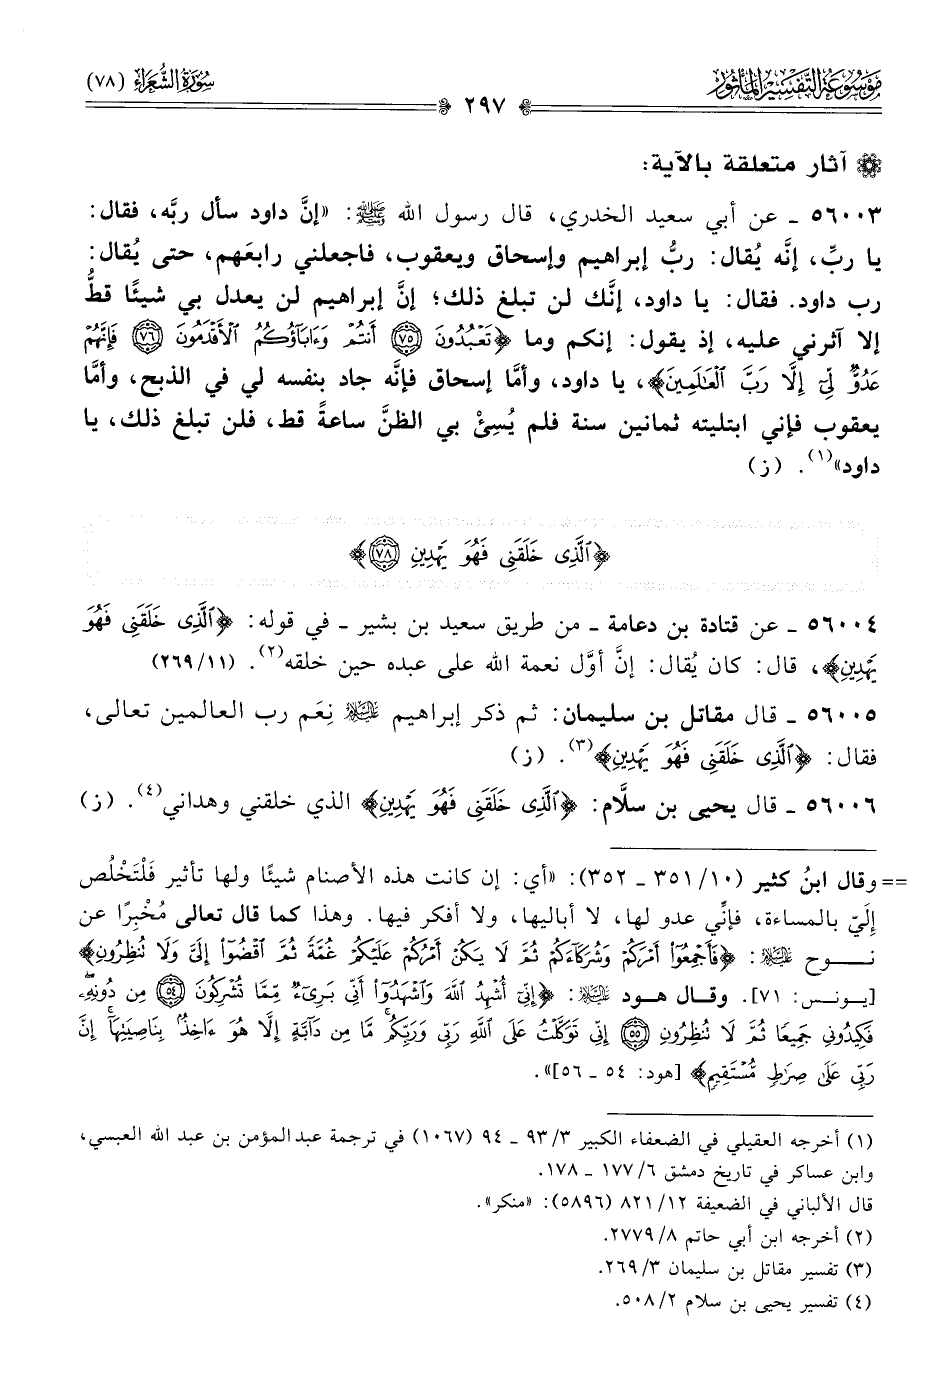 موسوعة التفسير المأثور
سورة الشعراء (٧٨)
٢٩٧
آثار متعلقة بالآية:
٥٦٠٠٣ ـ عن أبي سعيد الخدري، قال رسول الله ﷺ: «إنَّ داود سأل ربَّه، فقال:
يا ربِّ، إنَّه يُقال: ربُّ إبراهيم وإسحاق ويعقوب، فاجعلني رابعَهم، حتى يُقال:
رب داود. فقال: يا داود، إنَّك لن تبلغ ذلك؛ إنَّ إبراهيم لن يعدل بي شيئًا قطُّ
إلا آثرني عليه، إذ يقول: إنكم وما ﴿تَعْبُدُونَ ۝٧٥ أَنتُمْ وَءَابَآؤُكُمُ ٱلْأَقْدَمُونَ ۝٧٦ فَإِنَّهُمْ
عَدُوٌّ لِّىٓ إِلَّا رَبَّ ٱلْعَٰلَمِينَ﴾، يا داود، وأمَّا إسحاق فإنَّه جاد بنفسه لي في الذبح، وأمَّا
يعقوب فإني ابتليته ثمانين سنة فلم يُسِئْ بي الظنَّ ساعةً قط، فلن تبلغ ذلك، يا
داود»(١). (ز)
﴿ٱلَّذِى خَلَقَنِى فَهُوَ يَهْدِينِ ۝٧٨﴾
٥٦٠٠٤ ـ عن قتادة بن دعامة ـ من طريق سعيد بن بشير ـ في قوله: ﴿ٱلَّذِى خَلَقَنِى فَهُوَ
يَهْدِينِ﴾، قال: كان يُقال: إنَّ أوَّل نعمة الله على عبده حين خلقه(٢). (٢٦٩/١١)
٥٦٠٠٥ ـ قال مقاتل بن سليمان: ثم ذكر إبراهيم عليه السلام نِعَم رب العالمين تعالى،
فقال: ﴿ٱلَّذِى خَلَقَنِى فَهُوَ يَهْدِينِ﴾(٣). (ز)
٥٦٠٠٦ ـ قال يحيى بن سلَّام: ﴿ٱلَّذِى خَلَقَنِى فَهُوَ يَهْدِينِ﴾ الذي خلقني وهداني(٤). (ز)
== وقال ابنُ كثير (١٠/ ٣٥١ ـ ٣٥٢): «أي: إن كانت هذه الأصنام شيئًا ولها تأثير فَلْتَخْلُص
إِلَيّ بالمساءة، فإنِّي عدو لها، لا أباليها، ولا أفكر فيها. وهذا كما قال تعالى مُخْبِرًا عن
نـوح عليه السلام: ﴿فَأَجْمِعُوٓا۟ أَمْرَكُمْ وَشُرَكَآءَكُمْ ثُمَّ لَا يَكُنْ أَمْرُكُمْ عَلَيْكُمْ غُمَّةً ثُمَّ ٱقْضُوٓا۟ إِلَىَّ وَلَا تُنظِرُونِ﴾
[يـونـس: ٧١]. وقال هـود عليه السلام: ﴿إِنِّىٓ أُشْهِدُ ٱللَّهَ وَٱشْهَدُوٓا۟ أَنِّى بَرِىٓءٌ مِّمَّا تُشْرِكُونَ ۝٥٤ مِن دُونِهِۦ
فَكِيدُونِى جَمِيعًا ثُمَّ لَا تُنظِرُونِ ۝٥٥ إِنِّى تَوَكَّلْتُ عَلَى ٱللَّهِ رَبِّى وَرَبِّكُم مَّا مِن دَآبَّةٍ إِلَّا هُوَ ءَاخِذٌۢ بِنَاصِيَتِهَآ إِنَّ
رَبِّى عَلَىٰ صِرَٰطٍ مُّسْتَقِيمٍ﴾ [هود: ٥٤ ـ ٥٦]».
(١) أخرجه العقيلي في الضعفاء الكبير ٩٣/٣ ـ ٩٤ (١٠٦٧) في ترجمة عبد المؤمن بن عبد الله العبسي،
وابن عساكر في تاريخ دمشق ٦/ ١٧٧ ـ ١٧٨.
قال الألباني في الضعيفة ١٢/ ٨٢١ (٥٨٩٦): «منكر».
(٢) أخرجه ابن أبي حاتم ٨/ ٢٧٧٩.
(٣) تفسير مقاتل بن سليمان ٣/ ٢٦٩.
(٤) تفسير يحيى بن سلام ٢/ ٥٠٨.